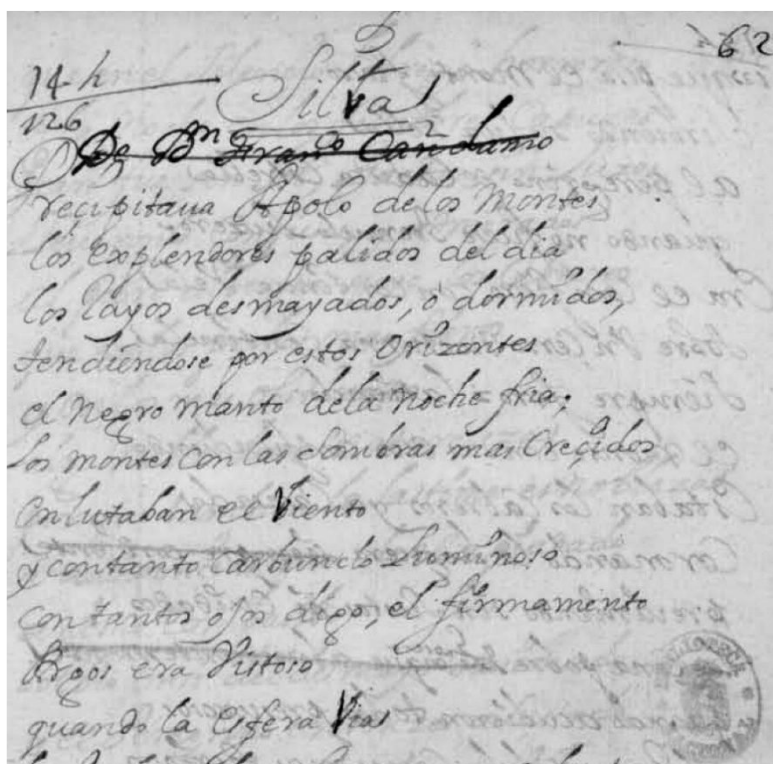 62
14h
126
Silva
De Dn Franco Candamo
Preçipitaua Apolo de los Montes
los explendores palidos del dia
los rayos desmayados, o dormidos,
tendiendose por estos Orizontes
el negro manto dela noche fria;
los montes con las sombras mas Creçidos
enlutaban el Viento
y contanto Carbunclo Luminoso
con tantos ojos dego, el firmamento
Argos era Vistoso
quando la esfera